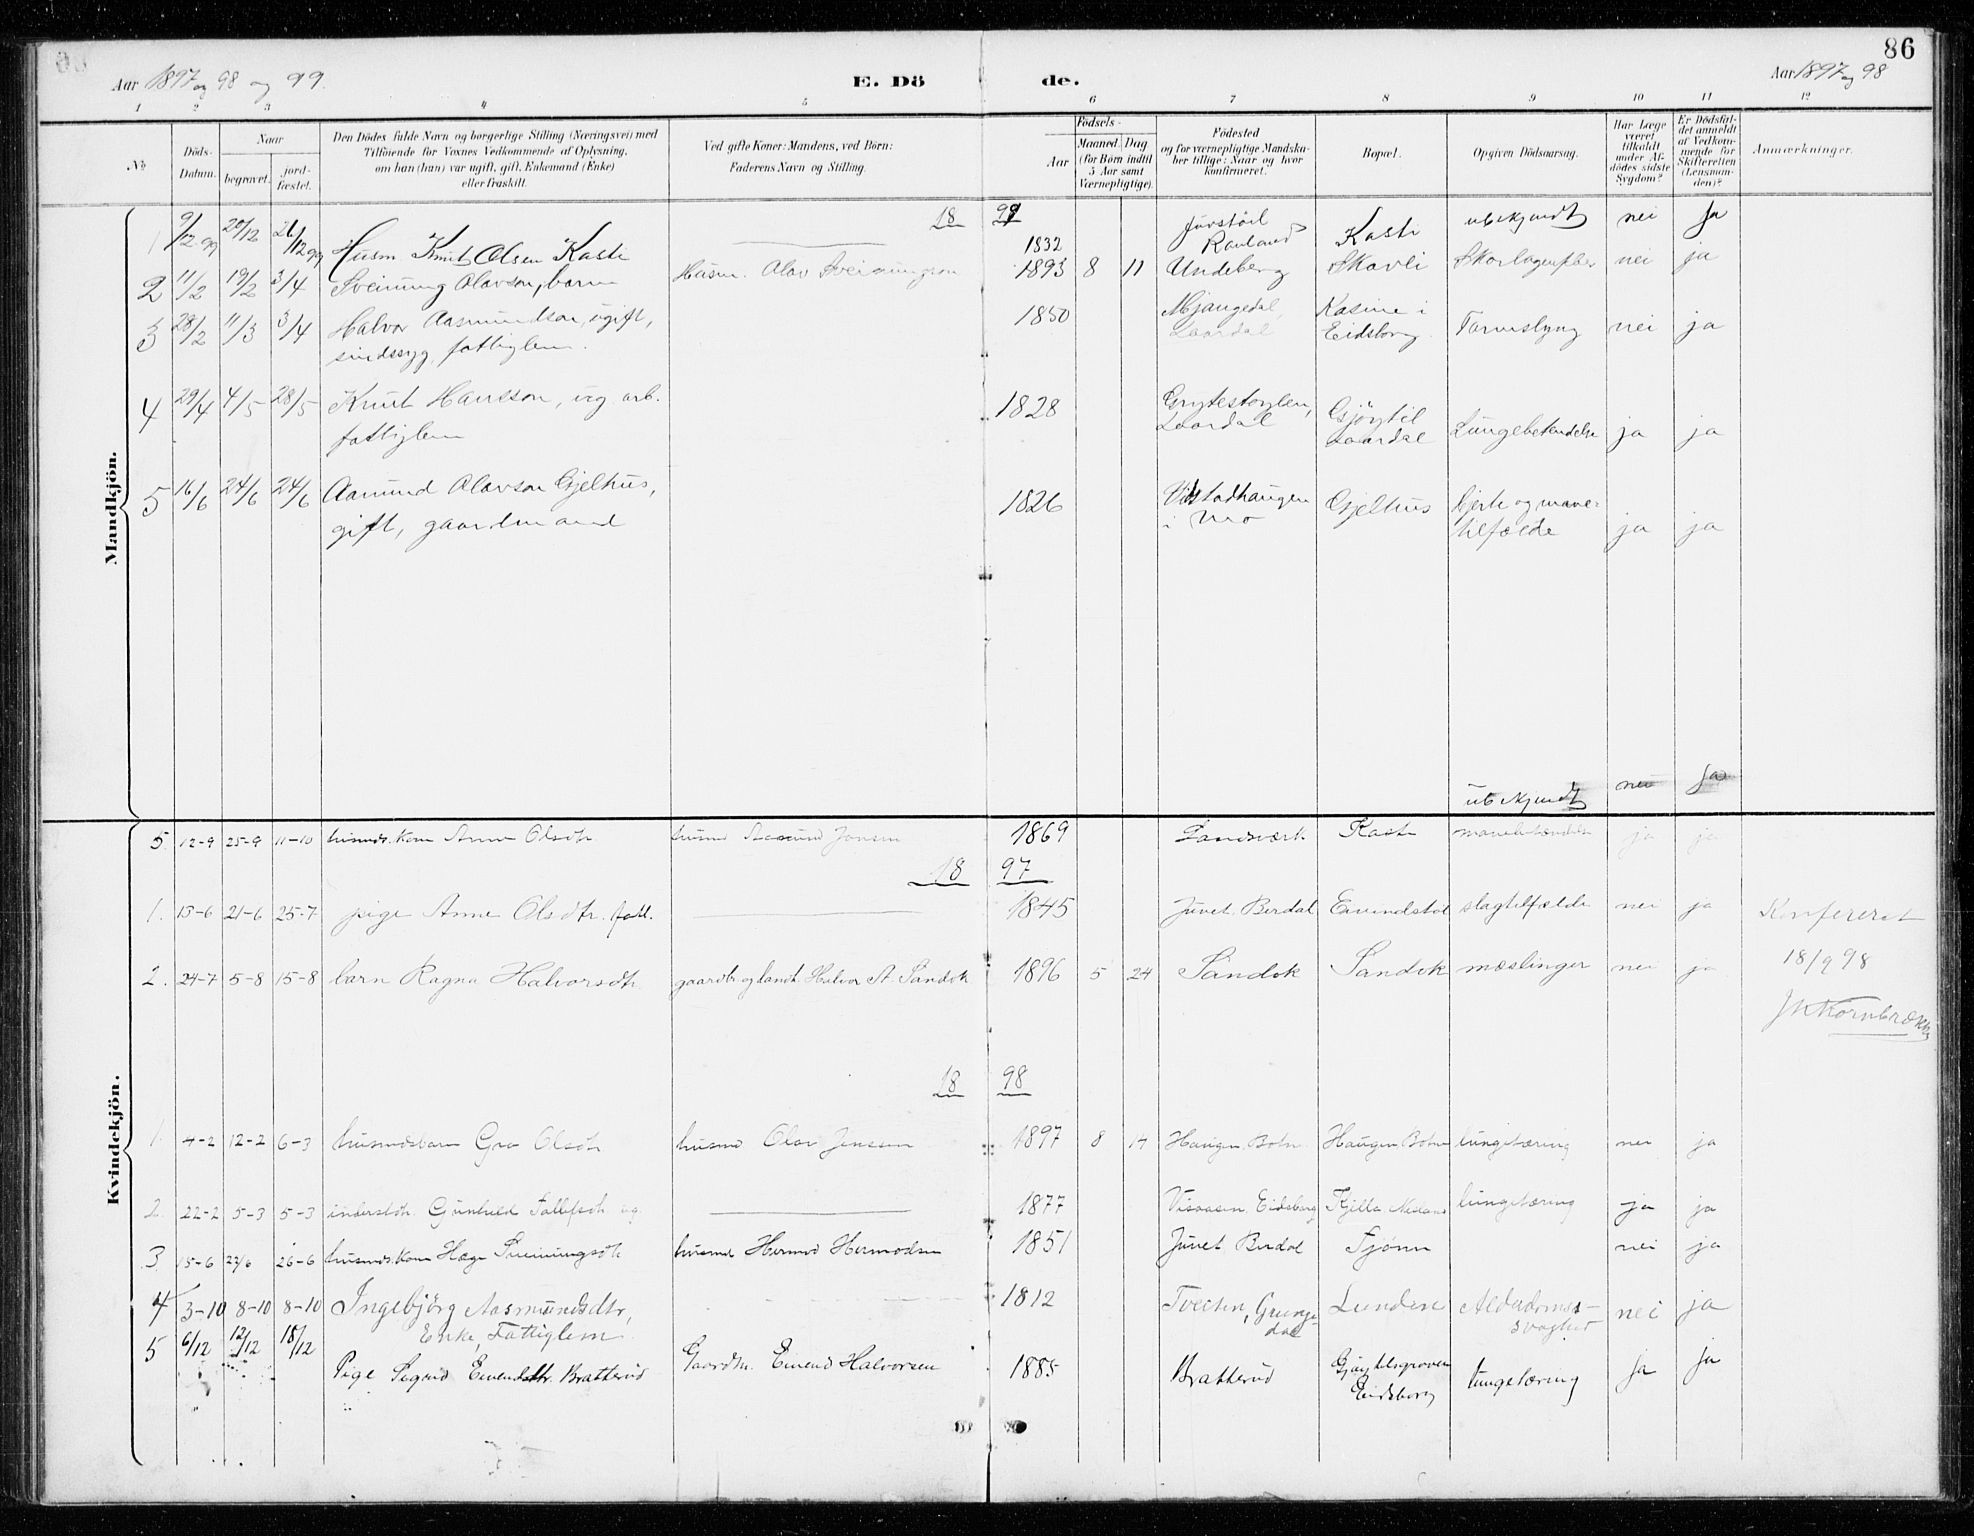 86
Aar 1897 og 98 og 99.
E. Dö
de.
Aar 1897 og 98
1 2 3 4 5 6 7 8 9 10 11 12
No
Döds-
Datum.
Naar
begravet.
jord-
fæstet.
Den Dödes fulde Navn og borgerlige Stilling (Næringsvei) med
Tilföiende for Voxnes Vedkommende af Oplysning,
om han (hun) var ugift, gift, Enkemand (Enke)
eller fraskilt.
Ved gifte Koner: Mandens, ved Börn:
Faderens Navn og Stilling.
Födsels-
Aar
Maaned Dag
(for Börn indtil
5 Aar samt
Værnepligtige).
Födested
og for værnepligtige Mandska-
ber tillige: Naar og hvor
konfirmeret.
Bopæl.
Opgiven Dödsaarsag.
Har Læge
været
tilkaldt
under Af-
dödes sidste
Sygdom?
Er Dödsfal-
det anmeldt
af Vedkom-
mende for
Skifteretten
(Lensman-
den)?
Anmærkninger.
Mandkjön.
18 99
1 9/12 99 20/12 21/12 99 Husm Knut Olsen Kasti 1832 Rauland Kasti ubekjendt nei Ja
2 11/2 19/2 3/4 Sveinung Olavson, barn Husm. Olav Sveinungson 1893 8 11 Undeberg Skavli nei ja
3 28/2 11/3 3/4 Halvor Aasmundson, ugift, 1850 Mjaugedal, Kasine i Tarmslyng nei ja
sindssyg, fattiglem. Laardal Eidsborg
4 29/4 4/5 28/5 Knut Hansson, ug arb. 1828 Grytestøylen, Gjøytil
fattiglem Laardal Laardal Lungebetændelse ja ja
5 16/6 24/6 24/6 Aamund Olavson Gjelhus, 1826 Vistadhaugen Gjelhus Hjerte og mave-
gift, gaardmand i Mo tilfælde ja ja
ubekjendt nei Ja
Kvindekjön.
5 12-9 25-9 11-10 husmds. kone Anne Olsdtr. husmd Aamund Jonsen 1869 Landsverk Kasti mavebetændelse ja ja
18 97
1. 13-6 21-6 25-7 pige Anne Olsdtr. fatt. 1845 Juvet, Berdal Eivindstøl slagtilfælde nei ja Konfereret
2. 24-7 5-8 15-8 barn Ragna Halvorsdtr gaardbr. og handl. Halvor A. Sandok 1896 5 24 Sandok Sandok mæslinger nei ja 18/9 98
18 98
1. 4-2 12-2 6-3 husmdsbarn Gro Olsdtr husmd Olav Jenssen 1897 8 14 Haugen, Botn Haugen, Botn lungetæring nei ja
2. 22-2 5-3 5-3 inderstdtr. Gunhild Tallefsdtr. ug. 1877 Visaasen, Eidsborg lungetæring ja ja
3. 15-6 23/6 26-6 husmds. kone Hæge Sveinungsdtr husmd Hermod Hermodsen 1851 Juvet Berdal Fjønn nei ja
4 3-10 8-10 8-10 Ingebjörg Aasmundsdtr, 1812 Tveiten, Grunge- Lunden Alderdoms- nei ja
Enke, Fattiglem dal svaghed
5 6/12 12/12 18/12 Pige Sigrid Eivendsdtr. Bratterud Gaardm. Eivend Halvorsen 1885 Bratterud Eidsborg lungetæring Ja Ja